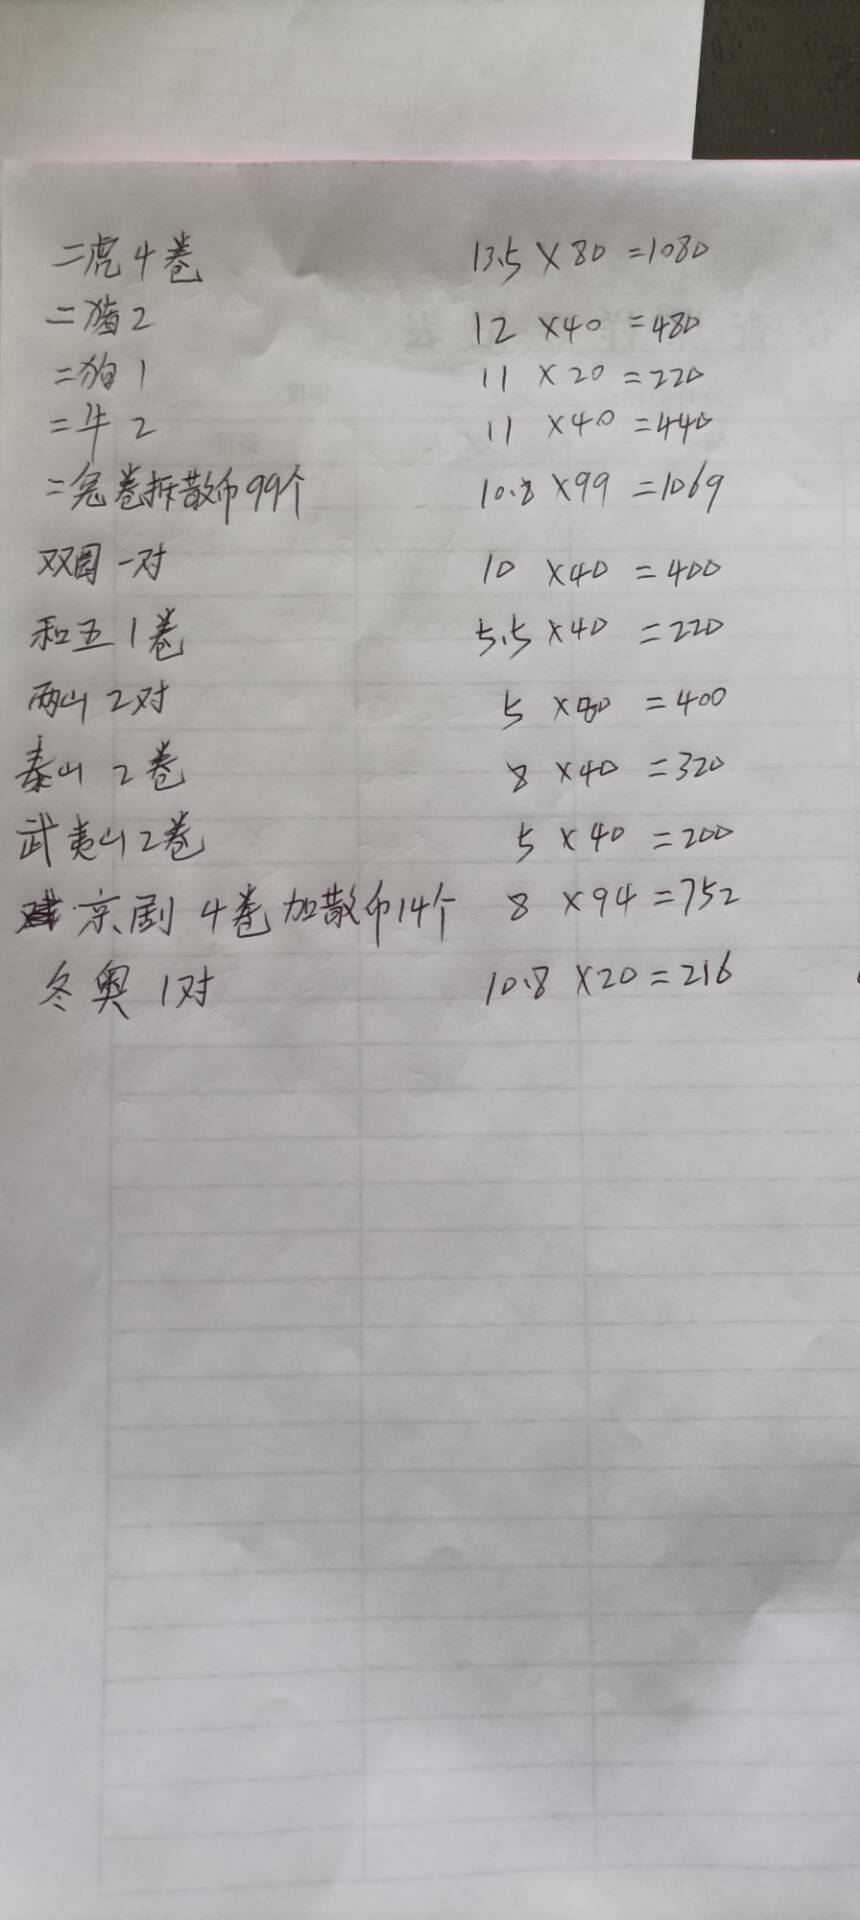 二虎4卷 13.5×80=1080
二猪2 12×40=480
二狗1 11×20=220
二牛2 11×40=440
二兔卷拆散币99个 10.8×99=1069
双圆一对 10×40=400
和五1卷 5.5×40=220
两山2对 5×80=400
泰山2卷 8×40=320
武夷山2卷 5×40=200
京剧4卷加散币14个 8×94=752
冬奥1对 10.8×20=216